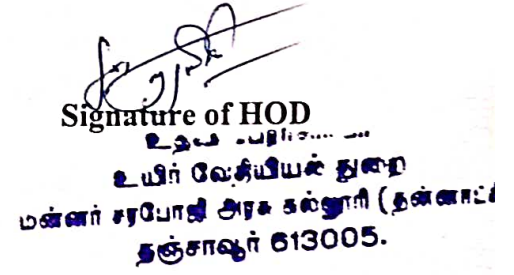 Signature of HOD
உயிர் வேதியியல் துறை
மன்னர் சரபோஜி அரசு கல்லூரி (தன்னாட்சி
தஞ்சாவூர் 613005.